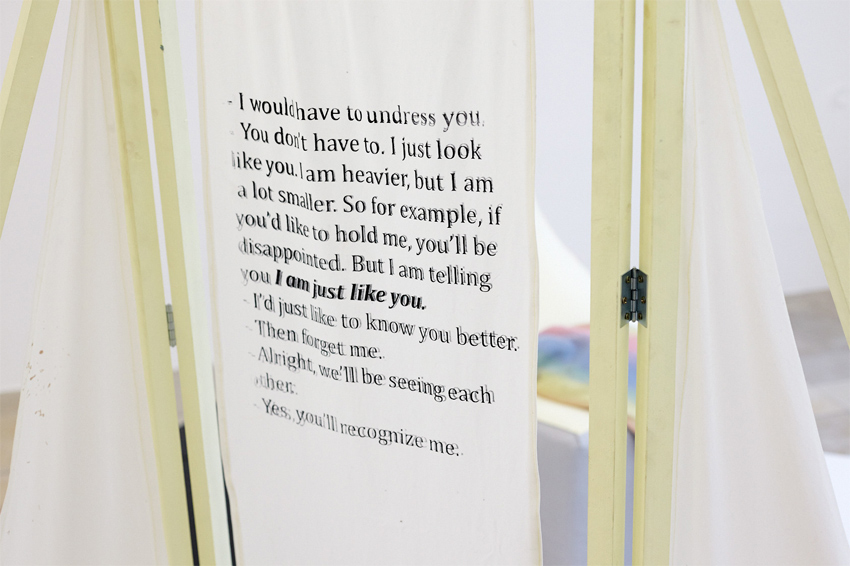 - I would have to undress you.
- You don't have to. I just look
like you. I am heavier, but I am
a lot smaller. So for example, if
you'd like to hold me, you'll be
disappointed. But I am telling
you I am just like you.
- I'd just like to know you better.
- Then forget me.
- Alright, we'll be seeing each
other.
- Yes, you'll recognize me.